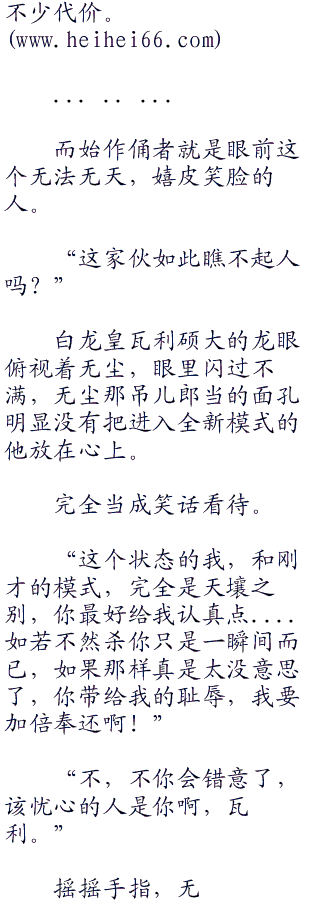 不少代价。
(www.heihei66.com)
... .. ...
而始作俑者就是眼前这
个无法无天，嬉皮笑脸的
人。
“这家伙如此瞧不起人
吗？”
白龙皇瓦利硕大的龙眼
俯视着无尘，眼里闪过不
满，无尘那吊儿郎当的面孔
明显没有把进入全新模式的
他放在心上。
完全当成笑话看待。
“这个状态的我，和刚
才的模式，完全是天壤之
别，你最好给我认真点....
如若不然杀你只是一瞬间而
已，如果那样真是太没意思
了，你带给我的耻辱，我要
加倍奉还啊！”
“不，不你会错意了，
该忧心的人是你啊，瓦
利。”
摇摇手指，无